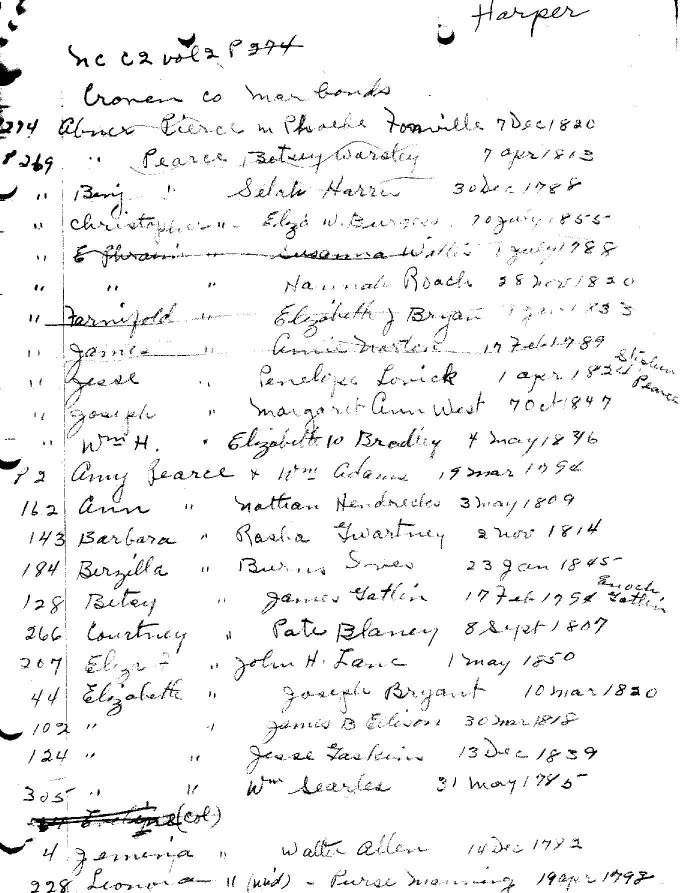 Harper
NC C2 vol 2 P 274
Craven co mar bonds
274 Abner Pierce m Phoebe Fonville 7 Dec 1820
P 269 " Pearce Betsey Warsley 7 apr 1813
" Benj " Selah Harris 30 Dec 1788
" Christopher " Eliza W. Burgess 20 July 1855
" Ephraim " Susanna Wallis 1 July 1788
" " " Hannah Roach 28 Nov 1820
" Farnifold " Elizabeth J Bryan 1833
" James " Annie Masten 17 Feb 1789
" Jesse " Penelope Lovick 1 apr 1824 Stephen Pearce
" Joseph " Margaret Ann West 7 Oct 1847
" Wm H. " Elizabeth W Bradley 4 May 1846
P 2 Amy Pearce & Wm Adams 19 mar 1794
162 Ann " Nathan Hendrecks 3 may 1809
143 Barbara " Rasha Gwartney 2 nov 1814
184 Berzilla " Burns Jones 23 Jan 1845
128 Betsy " James Gatlin 17 Feb 1794 Enoch Gatlin
266 Courtney " Pate Blaney 8 Sept 1807
207 Eliza F " John H. Lane 1 may 1850
44 Elizabeth " Joseph Bryant 10 mar 1820
102 " " James B Ellison 30 mar 1818
124 " " Jesse Gaskins 13 Dec 1839
305 " " Wm Searles 31 May 1785
(col)
4 Jemima " Walter Allen 14 Dec 1782
228 Leonora " (wid) - Purse Manning 19 apr 1798